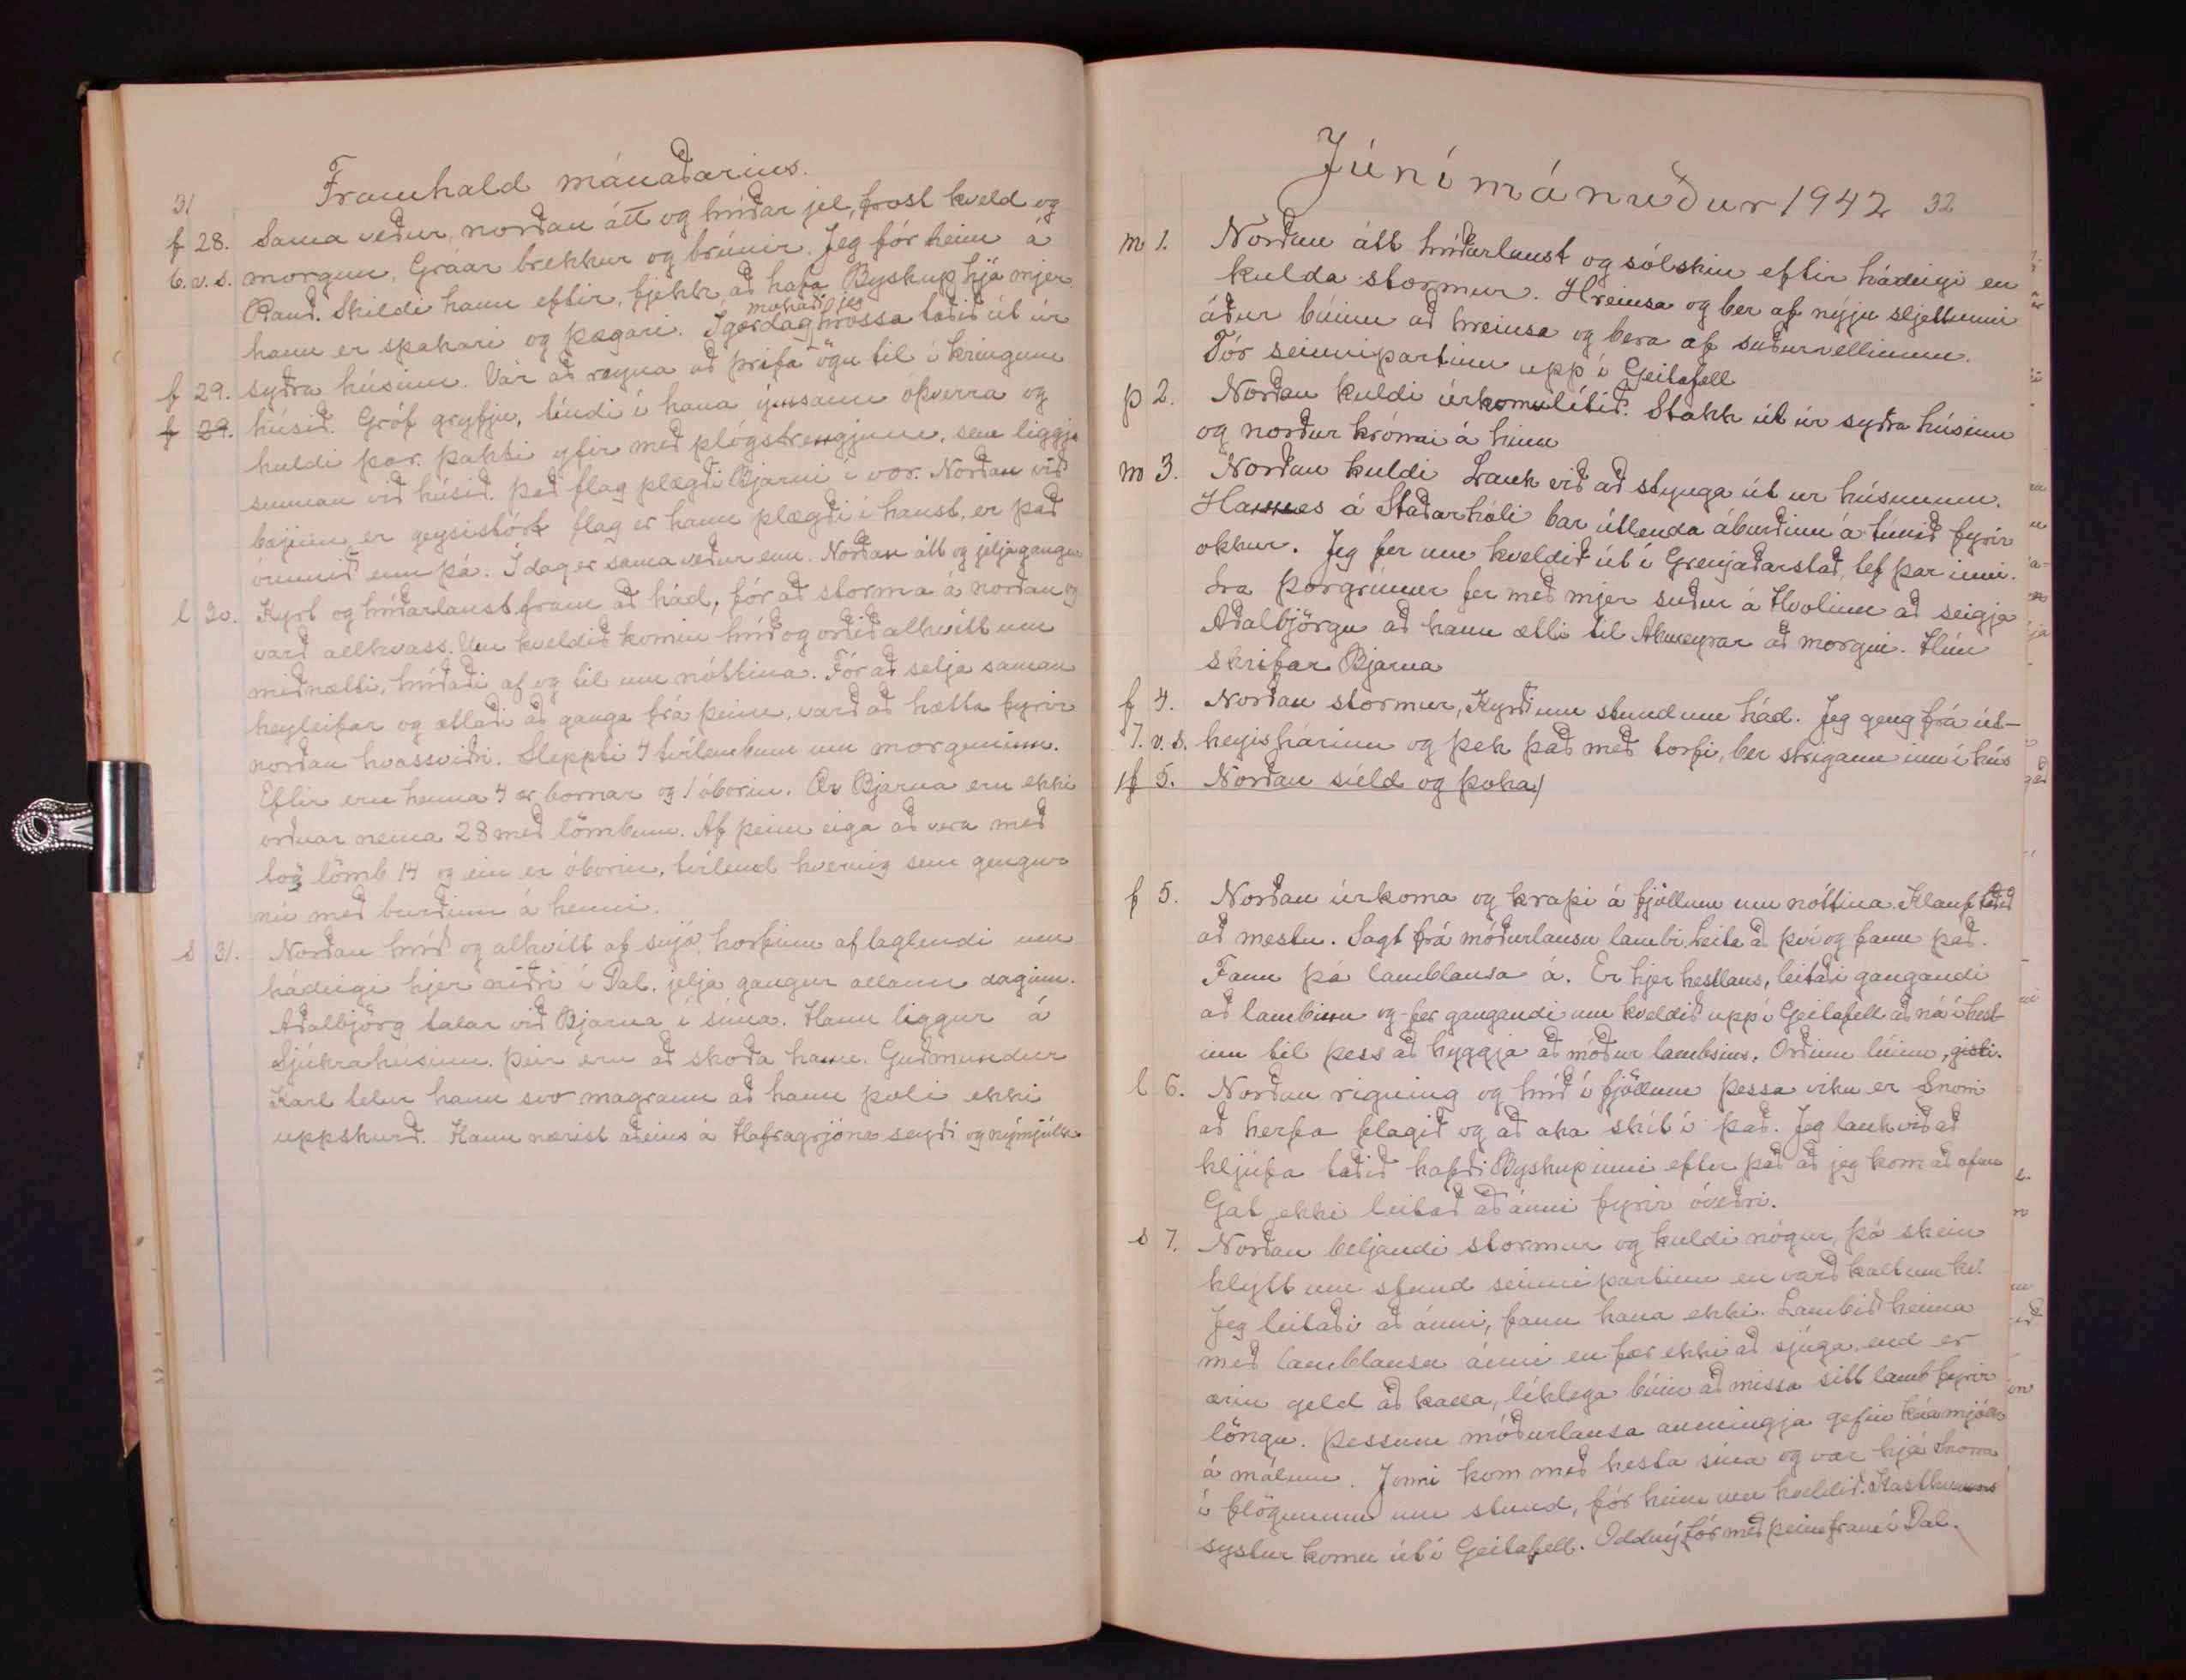 31
Framhald mánaðarins.
f 28. Sama veður, norðan átt og hríðar jel, frost kveld og
6.v.s. morgun. Gráar brekkur og brúnir. Jeg fór heim á
Rauð. Skildi hann eftir, fjekk að hafa Byskup hjá mjer
hann er spakari og þægari. Í gærdag mokaði jeg hrossa taðið út úr
f 29. syðra húsinu. Var að reyna að þrífa ögn til í kringum
f 29. húsið. Gróf gryfju, tíndi í hana ýmsann óþverra og
huldi þar. þakti yfir með plógstrengjum, sem liggja
sunnan við húsið. það flag plægði Bjarni í vor. Norðan við
bæjinn er geysistórt flag er hann plægði í haust, er það
óunnið enn þá. Í dag er sama veður enn. Norðan átt og jeljagangur
l 30. Kyrt og hríðarlaust fram að hád, fór að storma á norðan og
varð allhvass. Um kveldið komin hríð og orðið alhvítt um
miðnætti, hríðaði af og til um nóttina. Fór að setja saman
heyleifar og ætlaði að ganga frá þeim, varð að hætta fyrir
norðan hvassviðri. Sleppti 4 tvílembum um morguninn.
Eftir eru heima 4 ær bornar og 1 óborin. Ær Bjarna eru ekki
orðnar nema 28 með lömbum. Af þeim eiga að vera með
tvö lömb 14 og ein er óborin, tvílemd hvernig sem gengur
nú með burðinn á henni.
s 31. Norðan hríð og alhvítt af snjó, horfinn af láglendi um
hádeigi hjer niðri í Dal, jelja gangur allann daginn.
Aðalbjörg talar við Bjarna í síma. Hann liggur á
Sjúkrahúsinu. þeir eru að skoða hann. Guðmundur
Karl telur hann svo magrann að hann þoli ekki
uppskurð. Hann nærist aðeins á Hafragrjóna seyði og nýmjólk
Júnímánuður 1942 32
m 1. Norðan átt hríðarlaust og sólskin eftir hádeigi en
kulda stormur. Hreinsa og ber af nýju sljettunni
áður búinn að hreinsa og bera af suðurvellinum.
Fór seinnipartinn upp í Geitafell
þ 2. Norðan kuldi úrkomulítið. Stakk út úr syðra húsinu
og norður krónni á hinu
m 3. Norðan kuldi Lauk við að stynga út úr húsunum.
Hannes á Staðarhóli bar útlenda áburðinn á túnið fyrir
okkur. Jeg fer um kveldið út í Grenjaðarstað, tef þar inni.
Sra þorgrímur fer með mjer suður á Hvolinn að seigja
Aðalbjörgu að hann ætli til Akureyrar að morgni. Hún
skrifar Bjarna
f 4. Norðan stormur, Kyrði um stund um hád. Jeg geng frá út-
7. v. s. heyisfúinu og þek það með torfi, ber strigann inn í hús
f 5. Norðan súld og þoka)
f 5. Norðan úrkoma og krapi á fjöllum um nóttina Klauf taðið
að mestu. Sagt frá móðurlausu lambi leita að því og fann það.
Fann þá lamblausa á. Er hjer hestlaus, leitaði gangandi
að lambinu og fer gangandi um kveldið upp í Geitafell að ná í hest-
inn til þess að hyggja að móður lambsins. Orðinn lúinn, gisti.
l 6. Norðan rigning og hríð í fjöllum þessa viku er Snorri
að herfa flagið og að aka skít í það. Jeg lauk við að
kljúfa taðið hafði Byskup inni eftir það að jeg kom að ofan
Gat ekki leitað að ánni fyrir óveðri.
s 7. Norðan beljandi stormur og kuldi nógur, þó skein
hlýtt um stund seinni partinn en varð kalt um kv.
Jeg leitaði að ánni, fann hana ekki. Lambið heima
með lamblausu ánni en fær ekki að sjúga, end er
ærin geld að kalla, líklega búin að missa sitt lamb fyrir
löngu. þessum móðurlausa aumingja gefin kúamjólk
á málum. Jonni kom með hesta sína og var hjá Snorra
í flögunum um stund, fór heim um kveldið. Kasthvamms
systur komu út í Geitafell. Oddný fór með þeim fram í Dal.